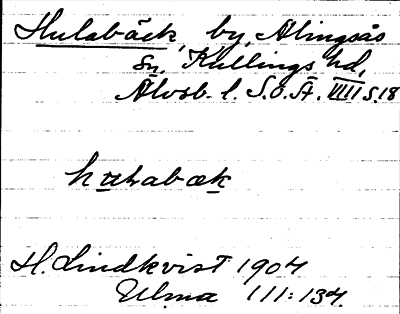 Hulabäck, by, Alingsås
sn, Kullings hd,
Älvsb. l. S.O.Ä. VIII s. 18
H. Lindkvist 1904
Ulma 111:134.